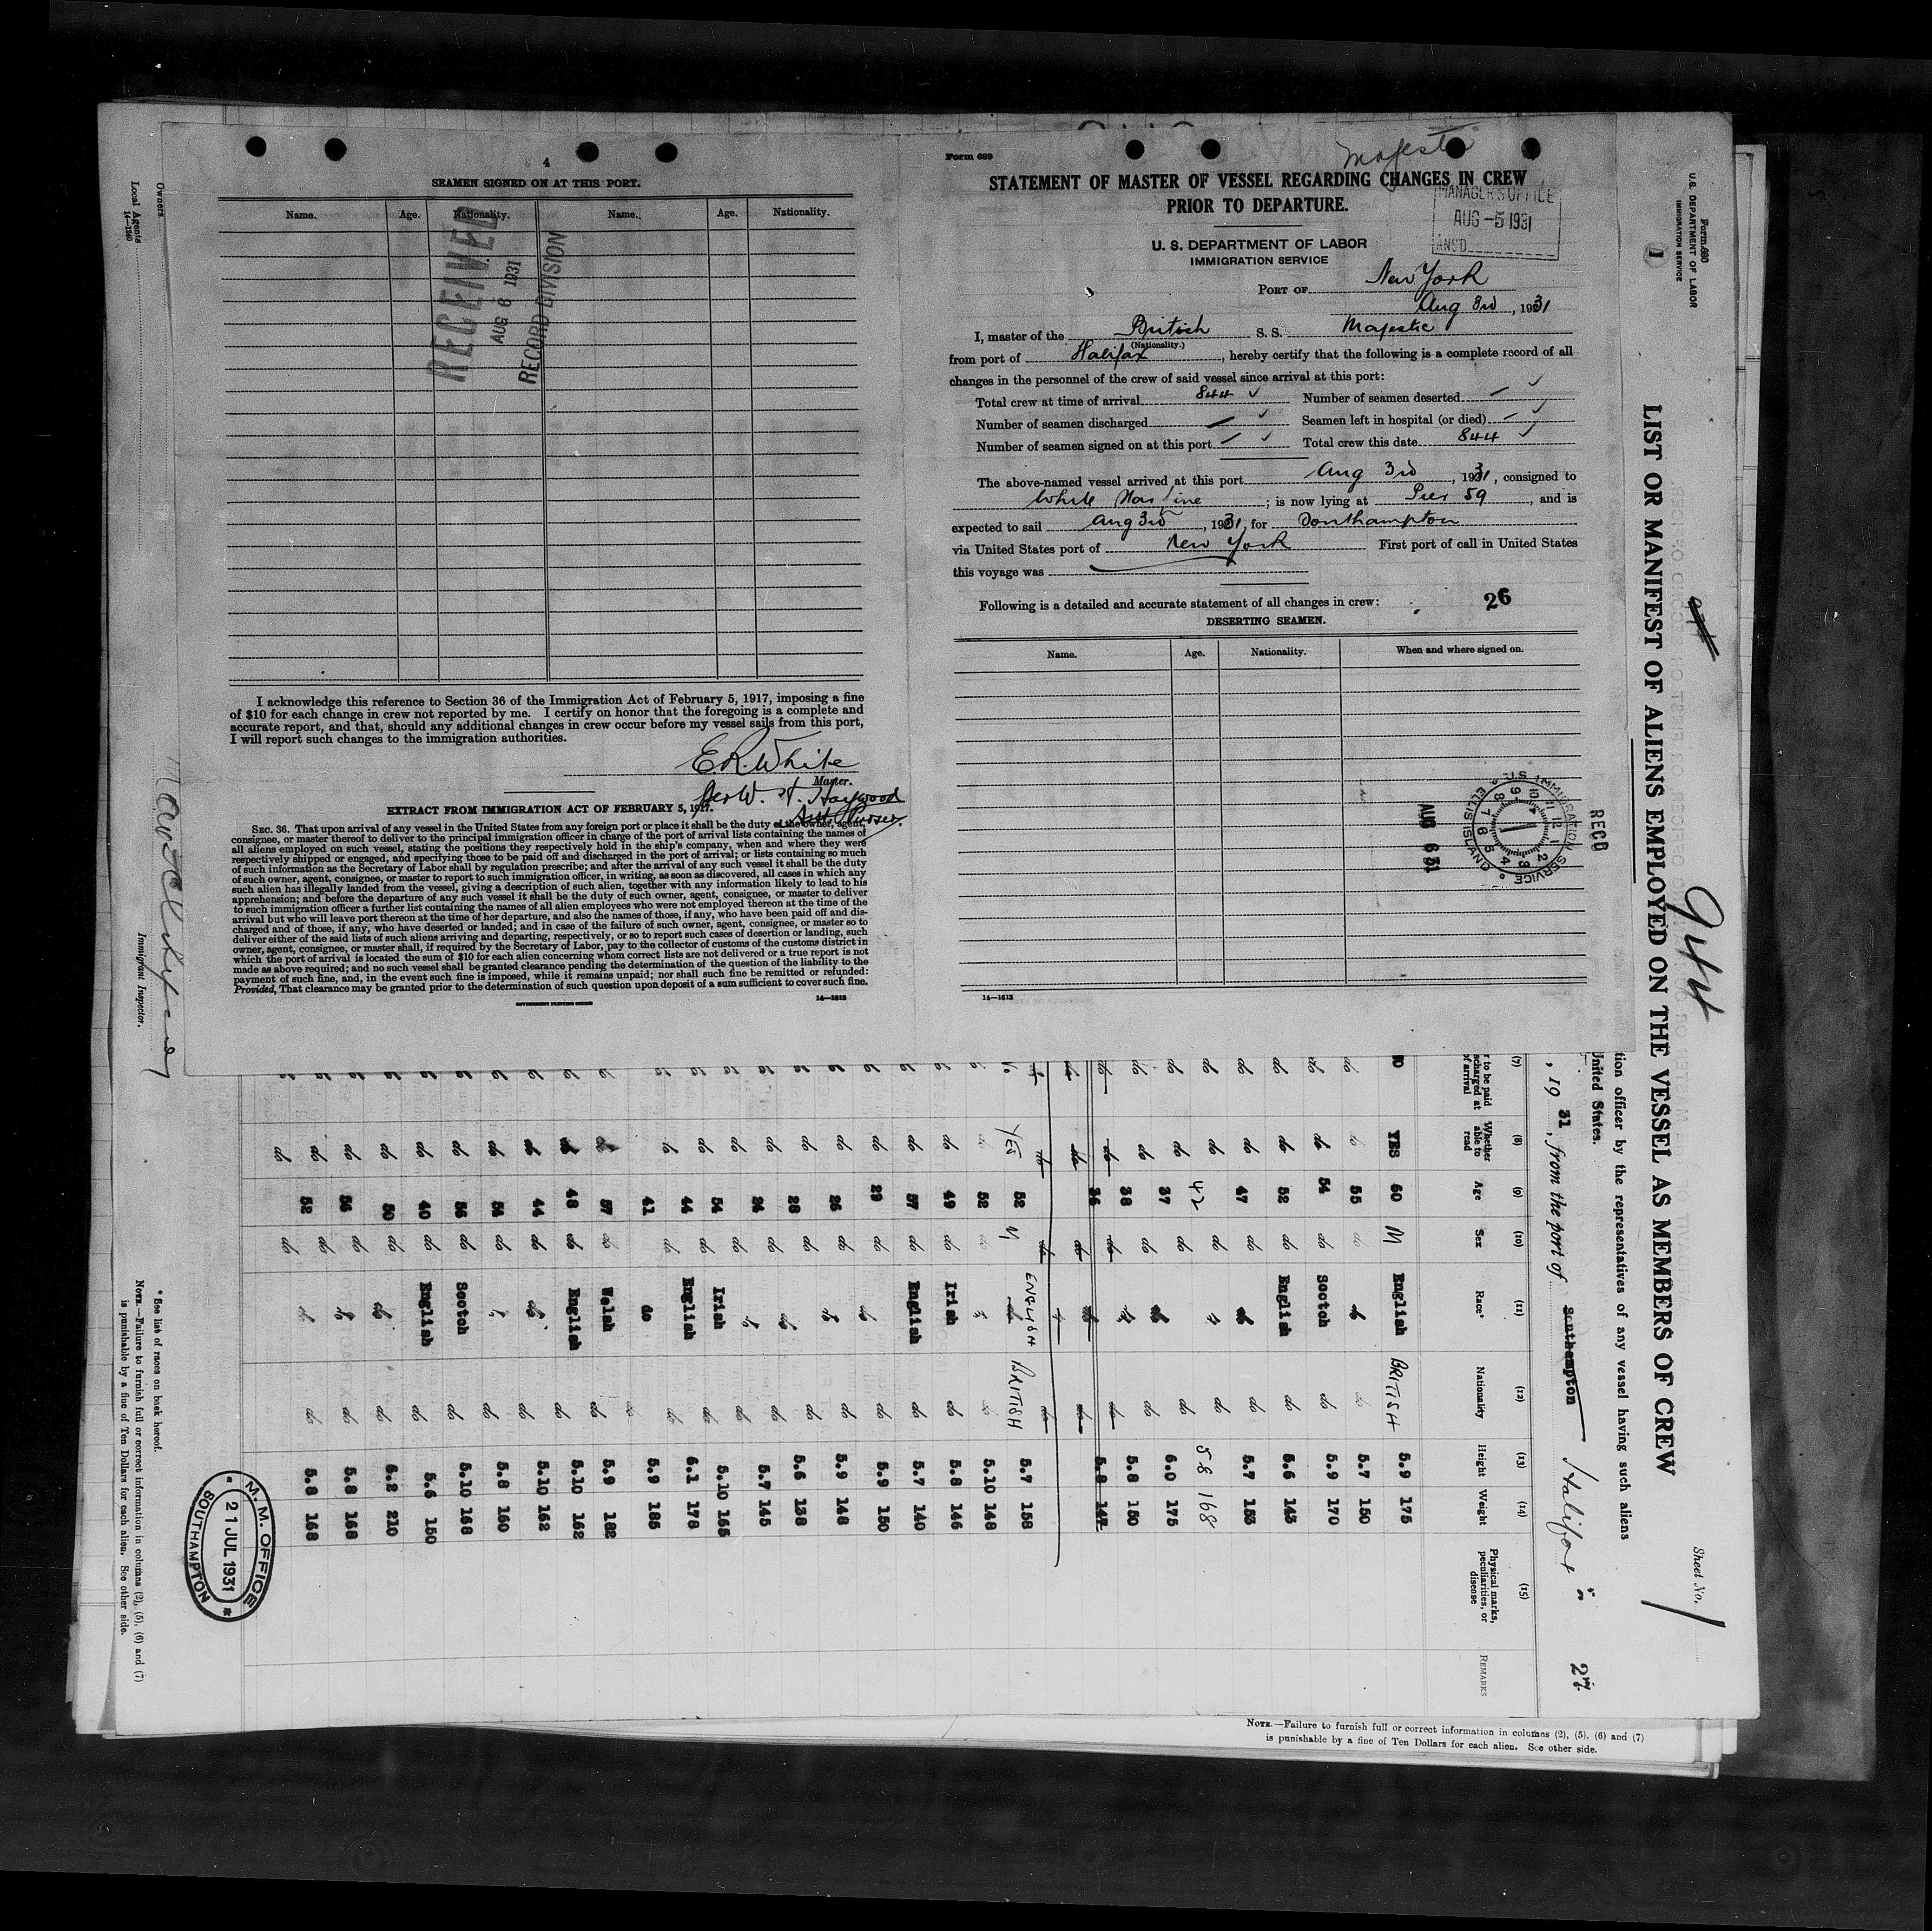 4
SEAMEN SIGNED ON AT THIS PORT.
Name. Age. Nationality. Name. Age. Nationality.
RECEIVED
AUG 8 1931
RECORD DIVISION
I acknowledge this reference to Section 36 of the Immigration Act of February 5, 1917, imposing a fine
of $10 for each change in crew not reported by me. I certify on honor that the foregoing is a complete and
accurate report, and that, should any additional changes in crew occur before my vessel sails from this port,
I will report such changes to the immigration authorities.
E.R. White
Master.
Geo W. H. Haywood
Asst Purser.
EXTRACT FROM IMMIGRATION ACT OF FEBRUARY 5, 1917.
SEC. 36. That upon arrival of any vessel in the United States from any foreign port or place it shall be the duty of the owner, agent,
consignee, or master thereof to deliver to the principal immigration officer in charge of the port of arrival lists containing the names of
all aliens employed on such vessel, stating the positions they respectively hold in the ship's company, when and where they were
respectively shipped or engaged, and specifying those to be paid off and discharged in the port of arrival; or lists containing so much
of such information as the Secretary of Labor shall by regulation prescribe; and after the arrival of any such vessel it shall be the duty
of such owner, agent, consignee, or master to report to such immigration officer, in writing, as soon as discovered, all cases in which any
such alien has illegally landed from the vessel, giving a description of such alien, together with any information likely to lead to his
apprehension; and before the departure of any such vessel it shall be the duty of such owner, agent, consignee, or master to deliver
to such immigration officer a further list containing the names of all alien employees who were not employed thereon at the time of the
arrival but who will leave port thereon at the time of her departure, and also the names of those, if any, who have been paid off and dis-
charged and of those, if any, who have deserted or landed; and in case of the failure of such owner, agent, consignee, or master so to
deliver either of the said lists of such aliens arriving and departing, respectively, or so to report such cases of desertion or landing, such
owner, agent, consignee, or master shall, if required by the Secretary of Labor, pay to the collector of customs of the customs district in
which the port of arrival is located the sum of $10 for each alien concerning whom correct lists are not delivered or a true report is not
made as above required; and no such vessel shall be granted clearance pending the determination of the question of the liability to the
payment of such fine, and, in the event such fine is imposed, while it remains unpaid; nor shall such fine be remitted or refunded:
Provided, That clearance may be granted prior to the determination of such question upon deposit of a sum sufficient to cover such fine.
GOVERNMENT PRINTING OFFICE 14—1613
Form 689
Majestic
STATEMENT OF MASTER OF VESSEL REGARDING CHANGES IN CREW
PRIOR TO DEPARTURE.
MANAGER'S OFFICE
AUG -5 1931
ANS'D
U. S. DEPARTMENT OF LABOR
IMMIGRATION SERVICE
PORT OF New York
Aug 3rd, 1931
I, master of the British S. S. Majestic
(Nationality.)
from port of Halifax, hereby certify that the following is a complete record of all
changes in the personnel of the crew of said vessel since arrival at this port:
Total crew at time of arrival 844 ✓ Number of seamen deserted — ✓
Number of seamen discharged — ✓ Seamen left in hospital (or died) — ✓
Number of seamen signed on at this port — ✓ Total crew this date 844 ✓
The above-named vessel arrived at this port Aug 3rd, 1931, consigned to
White Star Line; is now lying at Pier 59, and is
expected to sail Aug 3rd, 1931, for Southampton
via United States port of New York First port of call in United States
this voyage was
Following is a detailed and accurate statement of all changes in crew:
26
DESERTING SEAMEN.
Name. Age. Nationality. When and where signed on.
RECD
U.S. IMMIGRATION SERVICE ELLIS ISLAND
AUG 6 31
14—1613
Form 680
U.S. DEPARTMENT OF LABOR
IMMIGRATION SERVICE
1
944
Sheet No. 1
LIST OR MANIFEST OF ALIENS EMPLOYED ON THE VESSEL AS MEMBERS OF CREW
tion officer by the representatives of any vessel having such aliens
United States.
, 19 31, from the port of Southampton Halifax
(7) (8) (9) (10) (11) (12) (13) (14) (15)
r to be paid
scharged at
of arrival
Whether able to read
Age
Sex
Race*
Nationality
Height
Weight
Physical marks, peculiarities, or disease
REMARKS
YES 60 M English BRITISH 5.9 175
do 55 do do do 5.7 150
do 54 do Scotch do 5.9 170
do 52 do English do 5.6 143
do 47 do do do 5.7 153
do 42 do do do 5 8 168
do 37 do do do 6.0 175
do 38 do do do 5.8 150
do 36 do do do 5.8 147
YES 52 M ENGLISH BRITISH 5.7 158
do 52 do do do 5.10 148
do 49 do Irish do 5.8 146
do 57 do English do 5.7 140
do 29 do do do 5.9 150
do 26 do do do 5.9 148
do 28 do do do 5.6 138
do 24 do do do 5.7 145
do 54 do Irish do 5.10 165
do 44 do English do 6.1 178
41 do do 5.9 185
do 57 do Welsh do 5.9 182
do 48 do English do 5.10 162
do 44 do do do 5.10 162
do 54 do do do 5.8 160
do 56 do Scotch do 5.10 168
do 40 do English do 5.6 150
do 50 do do do 6.2 210
do 56 do do do 5.8 168
do 52 do do do 5.8 168
* See list of races on back hereof.
NOTE.—Failure to furnish full or correct information in columns (2), (5), (6) and (7)
is punishable by a fine of Ten Dollars for each alien. See other side.
Owners
Local Agents
14—1240
Immigrant Inspector.
M. M. OFFICE
21 JUL 1931
SOUTHAMPTON
NOTE.—Failure to furnish full or correct information in columns (2), (5), (6) and (7)
is punishable by a fine of Ten Dollars for each alien. See other side.